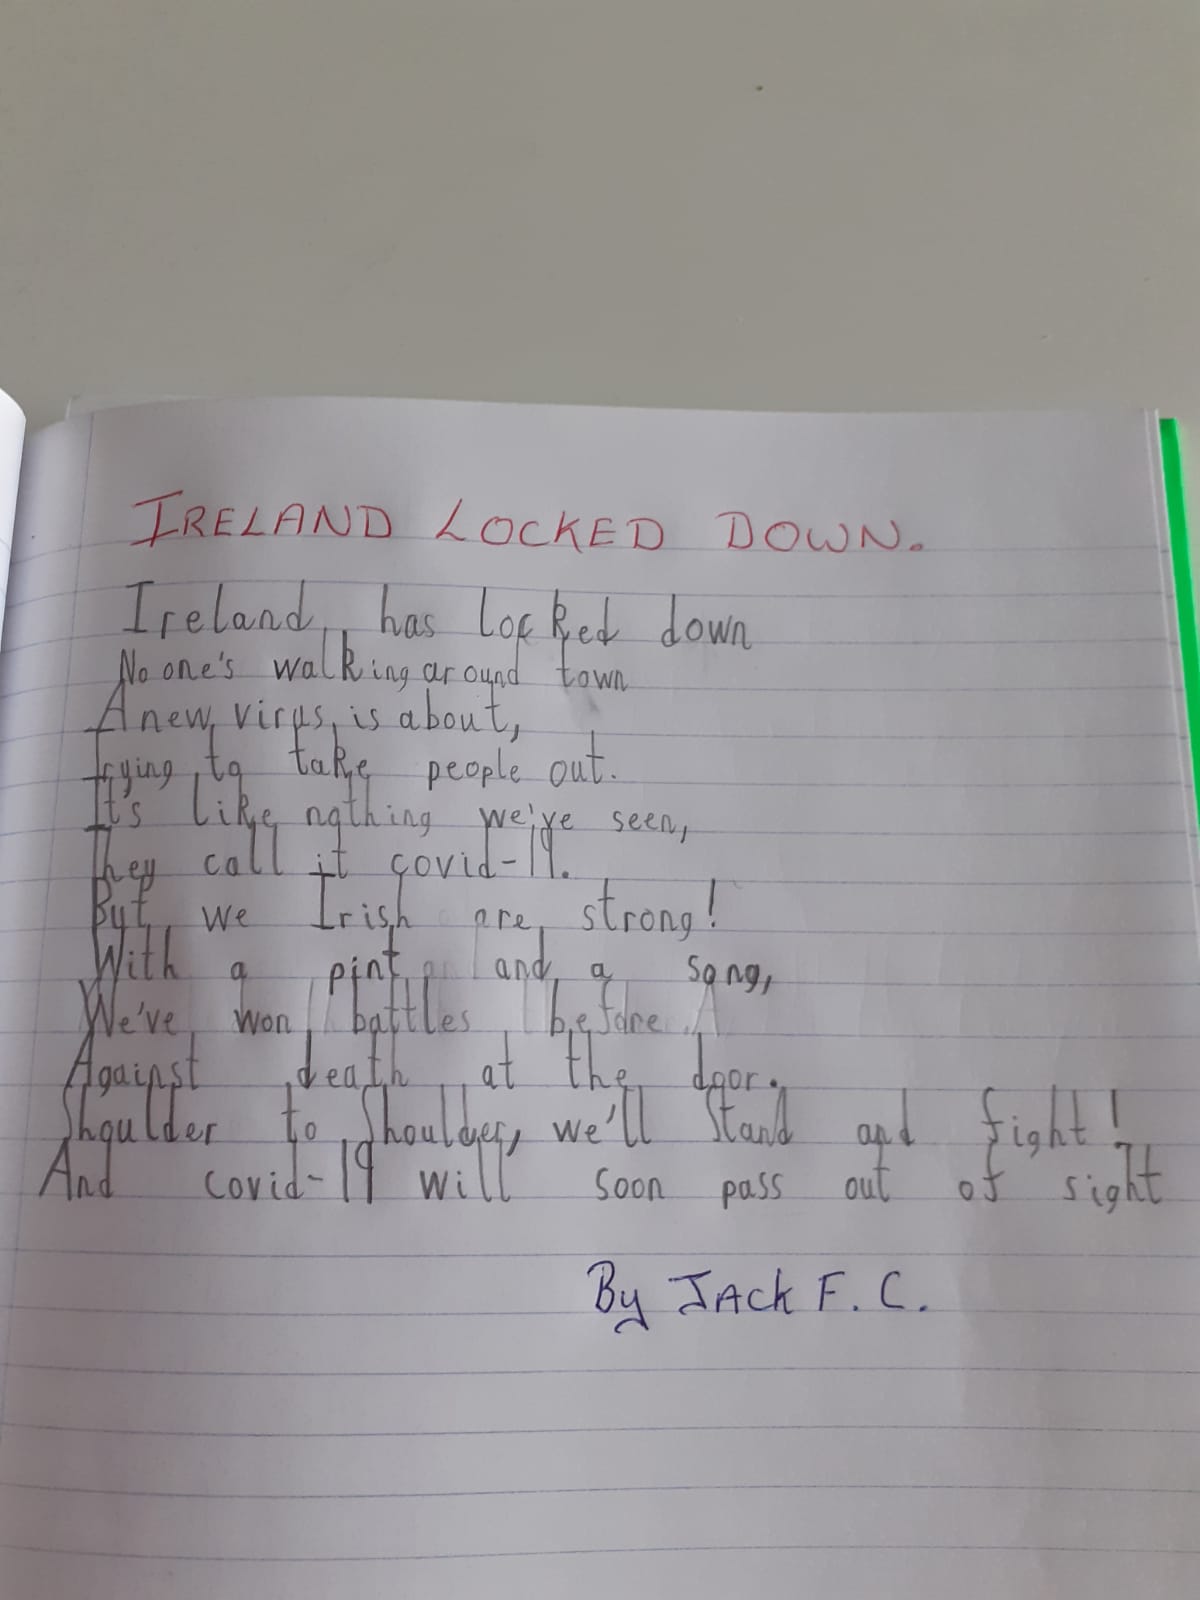 IRELAND LOCKED DOWN.
Ireland has locked down
No one's walking around town
A new virus is about,
trying to take people out.
It's like nothing we've seen,
they call it covid-19.
But we Irish are strong!
With a pint and a song,
We've won battles before
Against death at the door.
Shoulder to shoulder, we'll stand and fight!
And covid-19 will soon pass out of sight
By JACK F. C.